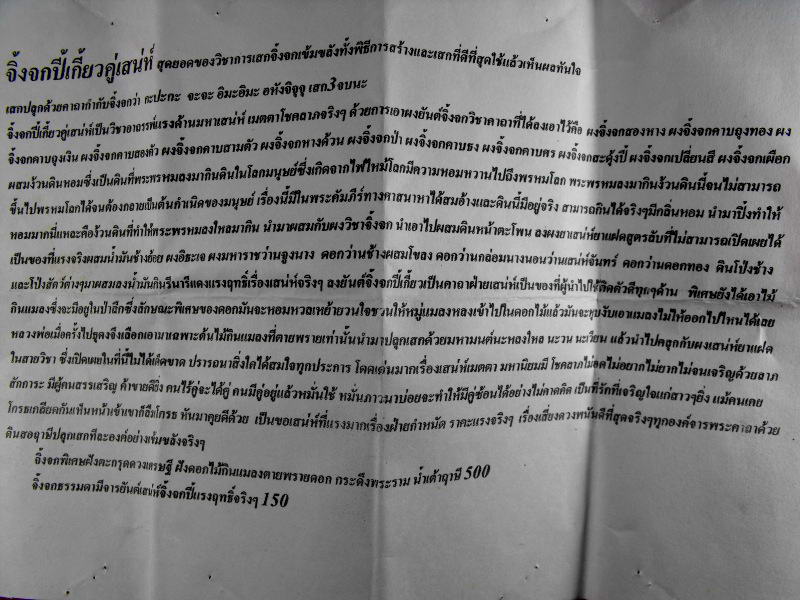 จิ้งจกปี้เกี้ยวคู่เสน่ห์ สุดยอดของวิชาการเสกจิ้งจกเข้มขลังทั้งพิธีการสร้างและเสกที่ดีที่สุดใช้แล้วเห็นผลทันใจ
เสกปลุกด้วยคาถากำกับจิ้งจกว่า กะปะกะ จะจะ อิมะอิมะ อหังจิจุจุ เสก3จบนะ
จิ้งจกปี้เกี้ยวคู่เสน่ห์เป็นวิชาอาถรรพ์แรงด้านมหาเสน่ห์ เมตตาโชคลาภจริงๆ ด้วยการเอาผงยันต์จิ้งจกวิชาคาถาที่ได้ลงเอาไว้คือ ผงจิ้งจกสองหาง ผงจิ้งจกคาบถุงทอง ผง
จิ้งจกคาบถุงเงิน ผงจิ้งจกคาบสองตัว ผงจิ้งจกคาบสามตัว ผงจิ้งจกหางด้วน ผงจิ้งจกป่า ผงจิ้งจกคาบธง ผงจิ้งจกคาบศร ผงจิ้งจกสะดุ้งปี้ ผงจิ้งจกเปลี่ยนสี ผงจิ้งจกเผือก
ผสมง้วนดินหอมซึ่งเป็นดินที่พระพรหมลงมากินดินในโลกมนุษย์ซึ่งเกิดจากไฟไหม้โลกมีความหอมหวานไปถึงพรหมโลก พระพรหมลงมากินง้วนดินนี้จนไม่สามารถ
ขึ้นไปพรหมโลกได้จนต้องกลายเป็นต้นกำเนิดของมนุษย์ เรื่องนี้มีในพระคัมภีร์ทางศาสนาหาได้สมอ้างและดินนี้มีอยู่จริง สามารถกินได้จริงๆมีกลิ่นหอม นำมาปิ้งทำให้
หอมมากนี่แหละคือง้วนดินที่ทำให้พระพรหมลงใหลมากิน นำมาผสมกับผงวิชาจิ้งจก นำเอาไปผสมดินหน้าตะโพน ลงผงยาเสน่ห์ยาแฝดสูตรลับที่ไม่สามารถเปิดเผยได้
เป็นของที่แรงจริงผสมน้ำมันช้างย้อย ผงอิธะเจ ผงมหาราชว่านจูงนาง ดอกว่านช้างผสมโขลง ดอกว่านกล่อมนางนอนว่านเสน่ห์จันทร์ ดอกว่านดอกทอง ดินโป่งช้าง
และโป่งสัตว์ต่างๆมาผสมลงน้ำมันกินรีนารีแดงแรงฤทธิ์เรื่องเสน่ห์จริงๆ ลงยันต์จิ้งจกปี้เกี้ยวเป็นคาถาฝ่ายเสน่ห์เป็นของที่ผู้นำไปใช้ติดตัวดีทุกๆด้าน พิเศษยังได้เอาไม้
กินแมลงซึ่งจะมีอยู่ในป่าลึกซึ่งลักษณะพิเศษของดอกมันจะหอมหวลเหย้ายวนใจชวนให้หมู่แมลงหลงเข้าไปในดอกไม้แล้วมันจะหุบงับเอาแมลงไม่ให้ออกไปไหนได้เลย
หลวงพ่อเมื่อครั้งไปธุดงจึงเลือกเอามาเฉพาะต้นไม้กินแมลงที่ตายพรายเท่านั้นนำมาปลุกเสกด้วยมหามนต์นะหลงใหล นะวน นะเวียน แล้วนำไปคลุกกับผงเสน่ห์ยาแฝด
ในสายวิชา ซึ่งเปิดเผยในที่นี้ไม่ได้เด็ดขาด ปรารถนาสิ่งใดได้สมใจทุกประการ โดดเด่นมากเรื่องเสน่ห์เมตตา มหานิยมมี โชคลาภไม่อดไม่อยากไม่ยากไม่จนเจริญด้วยลาภ
สักการะ มีผู้คนสรรเสริญ ค้าขายดียิ่ง คนไร้คู่จะได้คู่ คนมีคู่อยู่แล้วหมั่นใช้ หมั่นภาวนาบ่อยจะทำให้มีคู่ซ้อนได้อย่างไม่คาดคิด เป็นที่รักที่เจริญใจแก่สาวๆยิ่ง แม้คนเคย
โกรธเกลียดกันเห็นหน้าเข้าเขาก็ลืมโกรธ หันมาคุยดีด้วย เป็นขอเสน่ห์ที่แรงมากเรื่องฝ่ายกำหนัด ราคะแรงจริงๆ เรื่องเสี่ยงดวงพนันดีที่สุดจริงๆทุกองค์จารพระคาถาด้วย
ดินสอฤาษีปลุกเสกทีละองค์อย่างเข้มขลังจริงๆ
จิ้งจกพิเศษฝังตะกรุดดวงเศรษฐี ฝังดอกไม้กินแมลงตายพรายดอก กระดึงพระราม น้ำเต้าฤาษี 500
จิ้งจกธรรมดามีจารยันต์เสน่ห์จิ้งจกปี้แรงฤทธิ์จริงๆ 150